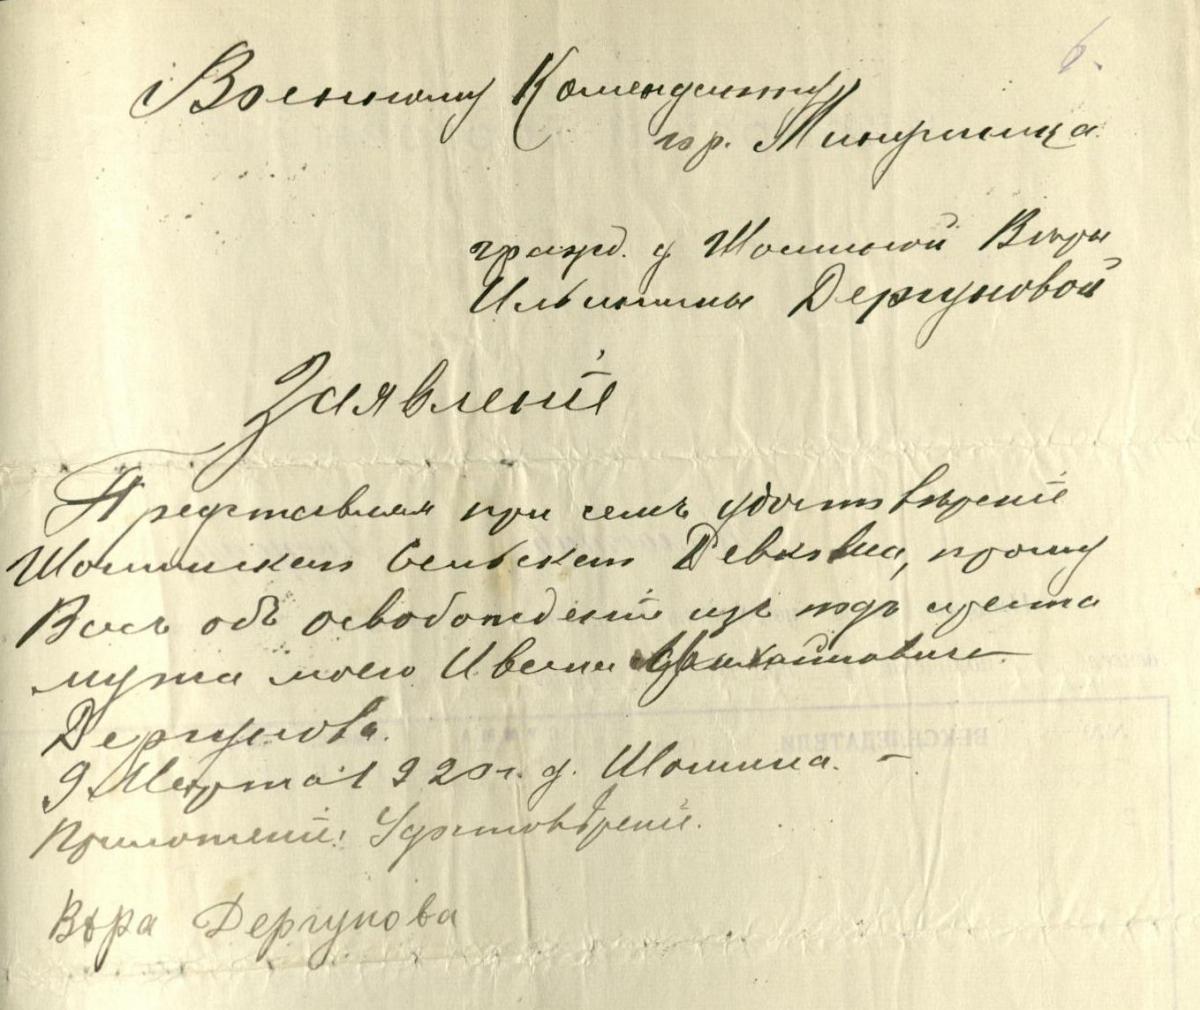 6.
Военному Коменданту
гор. Минусинска
гражд. д. Шошиной Веры
Ильинишны Дергуновой
Заявленіе
Представляя при семъ удостовѣреніе
Шошинскаго Сельскаго Ревкома, прошу
Васъ объ освобожденіи изъ подъ ареста
мужа моего Ивана Михайловича
Дергунова.
9 Марта 1920 г. д. Шошина. –
Приложеніе: Удостовѣреніе.
Вѣра Дергунова
ВЕКСЕЛЕДАТЕЛИ.